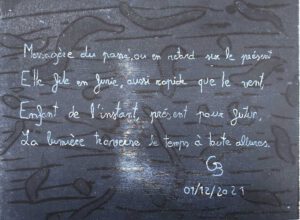 Messagère du passé, ou en retard sur le présent
Elle file en furie, aussi rapide que le vent,
Enfant de l'instant, présent pour futur,
La lumière traverse le temps à toute allures.
GB
01/12/2021